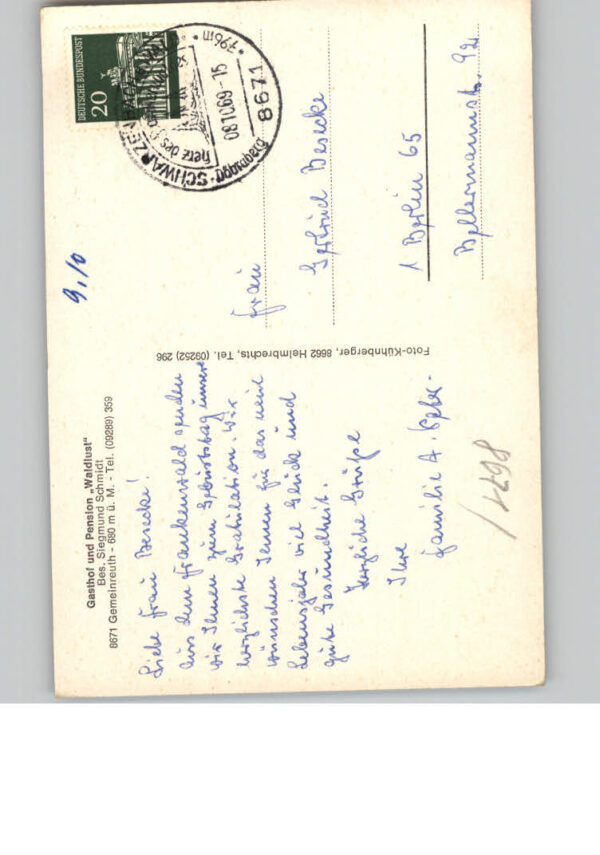 Gasthof und Pension „Waldlust"
Bes. Siegmund Schmidt
8671 Gemeinreuth - 680 m ü. M. - Tel. (09289) 359
Liebe Frau Besecke!
Aus dem Frankenwald senden
wir Ihnen zum Geburtstag unsere
herzlichste Gratulation. Wir
wünschen Ihnen für das neue
Lebensjahr viel Glück und
gute Gesundheit.
Herzliche Grüße
Ihre
Familie A.
Foto-Kühnberger, 8662 Helmbrechts, Tel. (09252) 296
9./10
DEUTSCHE BUNDESPOST
20
8671 SCHWARZENBACH
796m
08.10.69-15
Herz des
Döbraberg
Frau
Gertrud Besecke
1 Berlin 65
Bellermannstr. 92